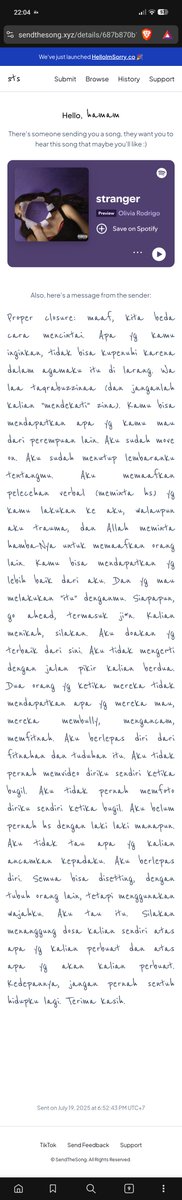 22:04
sendthesong.xyz/details/687b870b
We've just launched HelloImSorry.co 🎉
sts
Submit Browse History Support
Hello, hamam
There's someone sending you a song, they want you to
hear this song that maybe you'll like :)
stranger
Preview Olivia Rodrigo
Save on Spotify
Also, here's a message from the sender:
Proper closure: maaf, kita beda
cara mencintai. Apa yg kamu
inginkan, tidak bisa kupenuhi karena
dalam agamaku itu di larang. Wa
laa taqrabuzzinaa (dan janganlah
kalian "mendekati" zina). Kamu bisa
mendapatkan apa yg kamu mau
dari perempuan lain. Aku sudah move
on. Aku sudah menutup lembaranku
tentangmu. Aku memaafkan
pelecehan verbal (meminta hs) yg
kamu lakukan ke aku, walaupun
aku trauma, dan Allah meminta
hamba-Nya untuk memaafkan orang
lain. Kamu bisa mendapatkan yg
lebih baik dari aku. Dan yg mau
melakukan "itu" denganmu. Siapapun,
go ahead, termasuk j*n. Kalian
menikah, silakan. Aku doakan yg
terbaik dari sini. Aku tidak mengerti
dengan jalan pikir kalian berdua.
Dua orang yg ketika mereka tidak
mendapatkan apa yg mereka mau,
mereka membully, mengancam,
memfitnah. Aku berlepas diri dari
fitnahan dan tuduhan itu. Aku tidak
pernah memvideo diriku sendiri ketika
bugil. Aku tidak pernah memfoto
diriku sendiri ketika bugil. Aku belum
pernah hs dengan laki laki manapun.
Aku tidak tau apa yg kalian
ancamkan kepadaku. Aku berlepas
diri. Semua bisa disetting, dengan
tubuh orang lain, tetapi menggunakan
wajahku. Aku tau itu. Silakan
menanggung dosa kalian sendiri atas
apa yg kalian perbuat dan atas
apa yg akan kalian perbuat.
Kedepannya, jangan pernah sentuh
hidupku lagi. Terima kasih.
Sent on July 19, 2025 at 6:52:43 PM UTC+7
TikTok Send Feedback Support
© SendTheSong. All Rights Reserved.